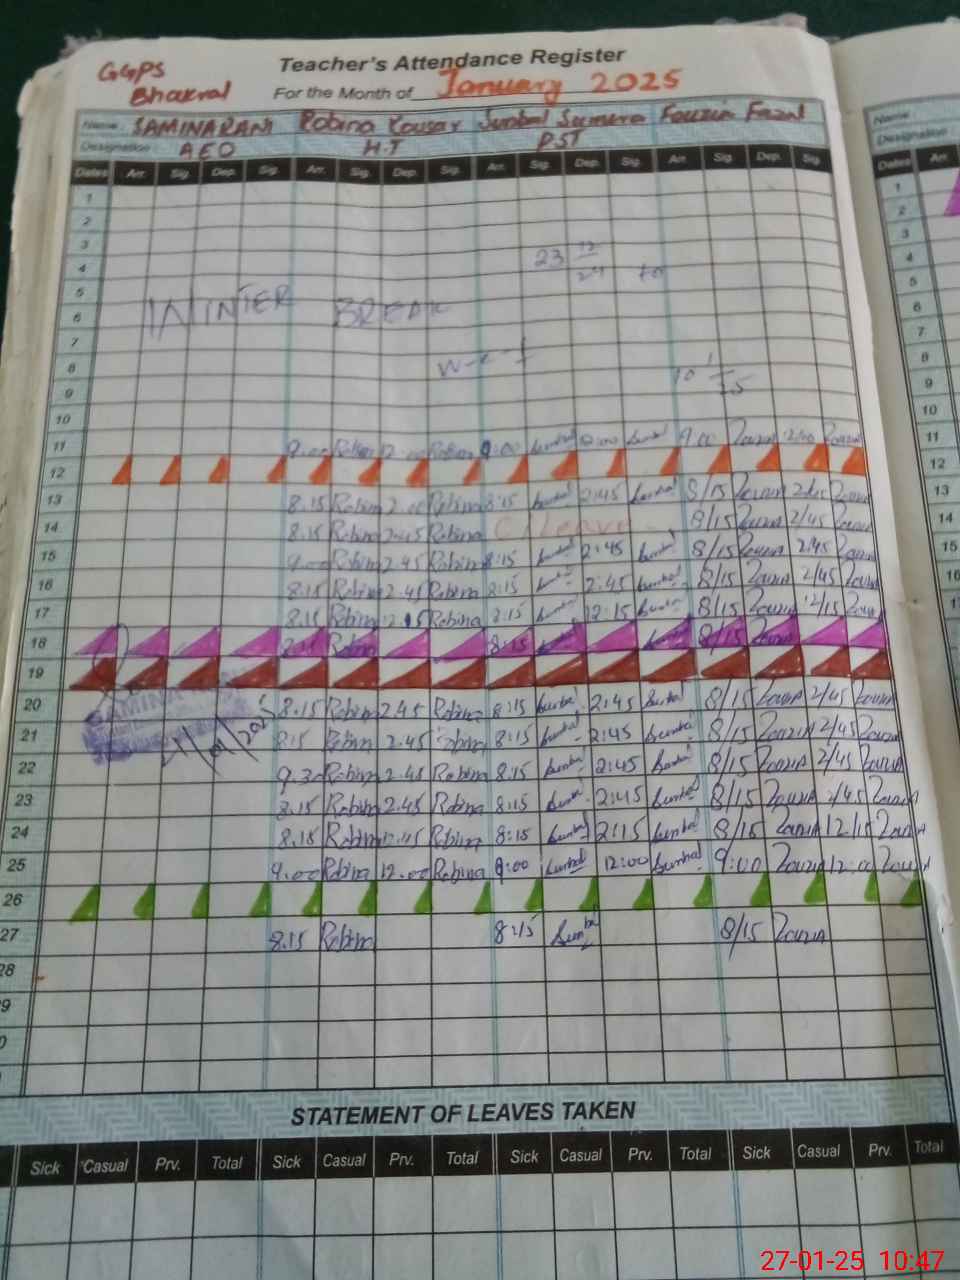 GGPS
Bhakral
Teacher's Attendance Register
For the Month of January 2025
Name: SAMINA RANI Robina Kousar Sunbal Sumera Fouzia Fazal
Designation: AEO H.T PST
Dates Arr. Sig. Dep. Sig. Arr. Sig. Dep. Sig. Arr. Sig. Dep. Sig. Arr. Sig. Dep. Sig.
1
2
3
4 23 12 24 to
5
6 WINTER BREAK
7
8 10 1
9
10
11 9.00 Robina 12.00 Robina 9:00 Sunbal Sunbal 9.00 Zouzia 12/00 Zouzia
12
13 8.15 Robina Robina 8:15 Sunbal 2:45 Sunbal 8/15 Zouzia 2/45 Zouzia
14 8.15 Robina 2.45 Robina C/Leave 8/15 Zouzia 2/45 Zouzia
15 9.00 Robina 2.45 Robina 8:15 Sunbal 2:45 Sunbal 8/15 Zouzia 2/45 Zouzia
16 8:15 Robina 2.45 Robina 8:15 Sunbal 2:45 Sunbal 8/15 Zouzia 2/45 Zouzia
17 8.15 Robina 12.15 Robina Sunbal 12:15 Sunbal 8/15 Zouzia 12/15 Zouzia
18 Robina 8:15 8/15 Zouzia
19
20 8.15 Robina 2.45 Robina 8:15 Sunbal 2:45 Sunbal 8/15 Zouzia 2/45 Zouzia
SAMINA
21 8:15 Robina 2.45 Robina 8:15 Sunbal 2:45 Sunbal 8/15 Zouzia 2/45 Zouzia
22 9.30 Robina 2.45 Robina 8:15 Sunbal 2:45 Sunbal 8/15 Zouzia 2/45 Zouzia
23 8.15 Robina 2.45 Robina 8:15 Sunbal 2:45 Sunbal 8/15 Zouzia 2/45 Zouzia
24 8.15 Robina 12.45 Robina 8:15 Sunbal Sunbal 8/15 Zouzia 12/15 Zouzia
25 9.00 Robina 12.00 Robina 9:00 Sunbal 12:00 Sunbal 9:00 Zouzia 12:00 Zouzia
26
27 8.15 Robina 8:15 Sunbal 8/15 Zouzia
28
STATEMENT OF LEAVES TAKEN
Sick Casual Prv. Total Sick Casual Prv. Total Sick Casual Prv. Total Sick Casual Prv. Total
Name:
Designation:
Dates Arr.
1
2
3
4
5
6
7
8
9
10
11
12
13
14
15
16
27-01-25 10:47